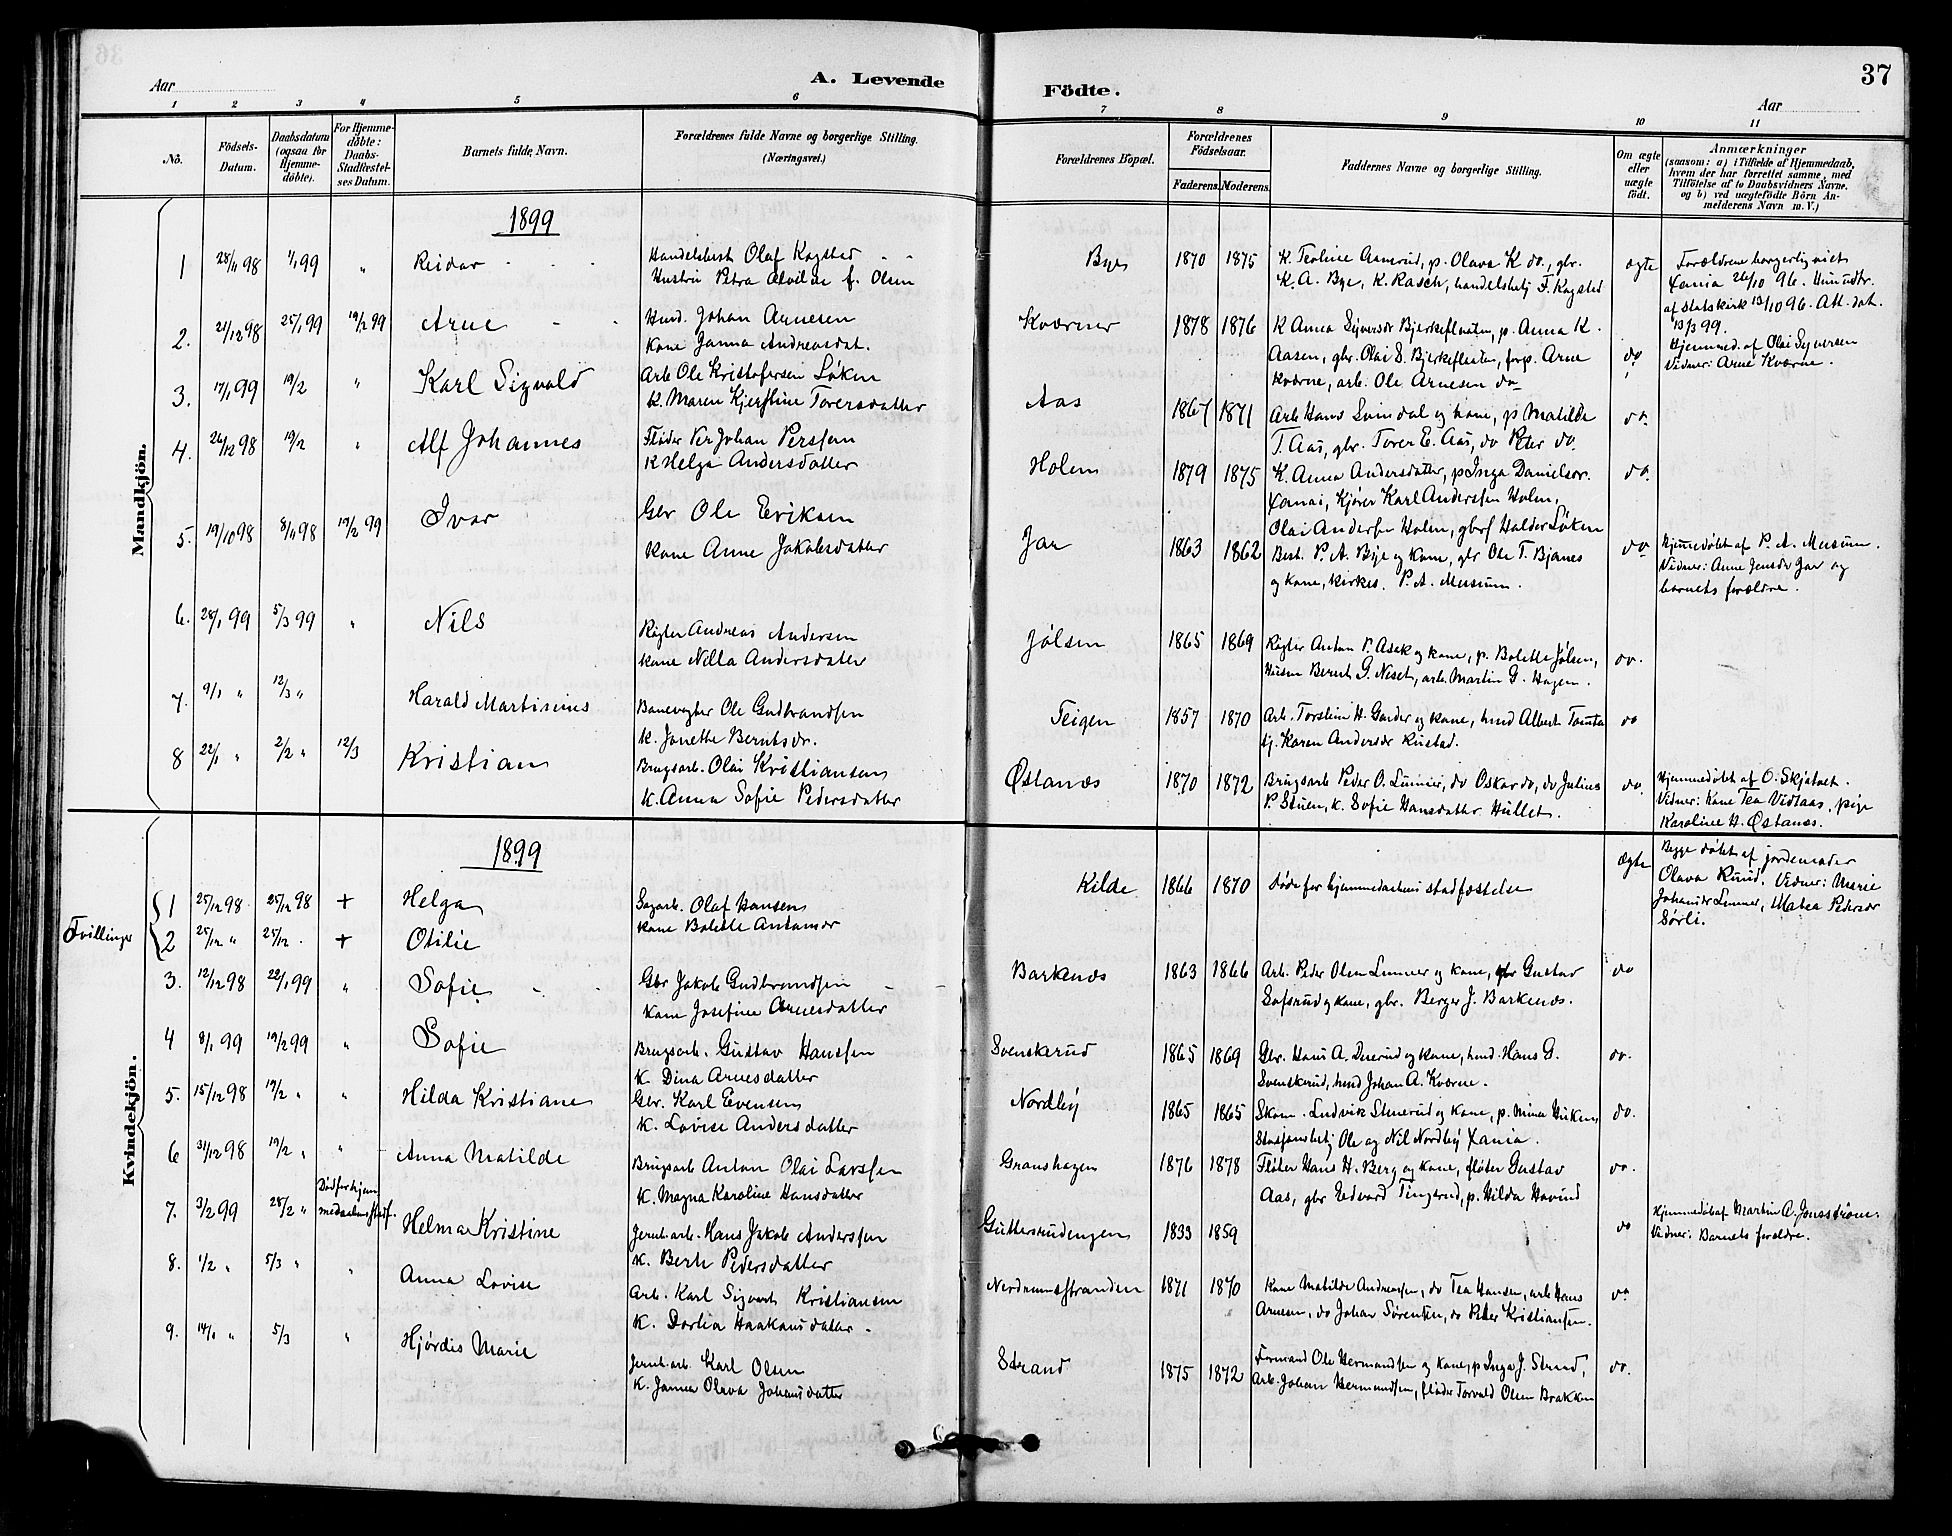 37
A. Levende
Födte.
Aar
Aar
1 2 3 4 5 6
7 8 9 10 11
No.
Födsels-Datum.
Daabsdatum (ogsaa for Hjemme-döbte).
For Hjemme-döbte: Daabs-Stadfæstel-ses Datum.
Barnets fulde Navn.
Forældrenes fulde Navne og borgerlige Stilling.
(Næringsvei.)
Forældrenes Bopæl.
Forældrenes Födselsaar.
Faderens. Moderens.
Faddernes Navne og borgerlige Stilling.
Om ægte eller uægte födt.
Anmærkninger
(saasom: a) i Tilfælde af Hjemmedaab,
hvem der har forrettet samme, med
Tilföielse af to Daabsvidners Navne.
og b) ved uægtefödte Börn An-
melderens Navn m. V.)
Mandkjön.
1899
1 28/11 98 1/1 99 " Reidar
Handelsbest Olaf Kagstad
Hustru Petra f. Olsen
Bye 1870 1875
K. Teoline Aamerud, p. Olava K do., gbr.
K. A. Bye, K. Rasch, handelsbetj F. Kagstad
ægte
Forældrene borgerlig viet
Xania 26/10 96. Hun udtr.
af statskirk 13/10 96. Att. dat.
13/3 99.
2. 21/12 98 25/1 99 19/2 99 Arne
Husd. Johan Arnesen
Kone Janna Andreasdat.
Kværner 1878 1876
K Anna Syversdr Bjerkefloaten, p. Anna K.
Aasen, gbr. Olai S. Bjerkefloaten, forp. Arne
Kværne, arb. Ole Arnesen do
do
Hjemmed. af Olai Syversen
Vidner: Arne Kværne.
3. 17/1 99 19/2 " Karl Sigvald
Arb Ole Kristofersen Løken
K. Maren Kjerstine Toversdatter
Aas 1867 1871
Arb Hans Svindal og kone, p Matilde
T. Aas, gbr. Torer E. Aas, do Peder do.
do.
4. 26/12 98 19/2 " Alf Johannes
Fløder Johan Perssen
K Helga Andersdatter
Holen 1879 1875
K. Anna Andersdatter, p Inga Danielsdr.
Xania, Kjører Karl Anderssen Holen,
Olai Andersen Holen, Halder Løken
do.
5. 19/10 98 8/11 98 19/2 99 Ivar
Gbr Ole Eriksen
Kone Anne Jakobsdatter
Jar 1863 1862
Best. P. A. Bye og kone, gbr Ole T. Bjanes
og kone, kirkes. P. A. Musum.
do
Hjemmedøbt af P. A. Musum.
Vidner: Anne Jensdr Jar og
barnets forældre.
6. 28/1 99 5/3 99 " Nils
Røgter Andreas Andersen
Kone Nilla Andersdatter
Jølsen 1865 1869
Røgter Anton P. Asak og kone, p. Bolette Jølsen,
Husm Bernt G. Neset, arb. Martin G. Hagen.
do.
7. 9/1 " 12/3 " Harald Martinius
Banevogter Ole Gudbrandsen
K. Janette Berntsdr.
Teigen 1857 1870
Arb. Torstein H. Garder og kone, husd Albert Tomta
tj. Karen Andersdr Rustad.
do
8 22/1 " 2/2 " 12/3 Kristian
Brugsarb. Olai Kristiansen
K. Anna Sofie Pedersdatter
Østanæs 1870 1872
Brugsarb Peder O. Lunner, do Oskar do, do Julius
P. Stuen, K. Sofie Hansdatter Hullet.
do.
Hjemmedøbt af O. Skjatvet.
Vidner: Kone Tea Vidtaas, pige
Karoline H. Østanæs.
Kvindekjön.
1899
Tvillinger
1 25/12 98 25/12 98 + Helga
Sagarb. Olaf Hansen
Kone Bolette Antonsdr
Kilde 1866 1870
Døde før hjemmedaabens stadfæstelse
ægte
Begge døbt af jordemoder
Olava Ruud. Vidner: Marie
Johansdr Lunner, Matea Pedersdr
Sørli.
2 25/12 " 25/12 . + Otilie
3. 12/12 98 22/1 99 " Sofie
Gbr Jakob Gudbrandsen
Kone Josefine Arnesdatter
Barkenæs 1863 1866
Arb. Peder Olsen Lunner og kone, gbr Gustav
Sofsrud og kone, gbr. Berger J. Barkenæs.
do
4 8/1 99 19/2 99 " Sofie
Brugsarb. Gustav Hanssen
K. Dina Arnesdatter
Svenskerud 1865 1869
Gbr. Hans A. Duerud og kone, husd. Hans G.
Svenskerud, husd Johan A. Kværne.
do.
5. 15/12 98 19/2 " " Hilda Kristiane
Gbr. Karl Evensen
K. Lovise Andersdatter
Nordby 1865 1865
Skom. Ludvik Stenerud og kone, p. Mina
Stasjonsbetj Ole og Nil Nordby Xania.
do.
6 31/12 98 19/2 " " Anna Matilde
Brugsarb Anton Olai Larssen
K. Magna Karoline Hansdatter
Granshagen 1876 1878
Fløter Hans H. Berg og kone, fløter Gustav
Aas, gbr Edvard Tingerud, p. Hilda Hovind
do.
7. 3/2 99 28/2 " Død før hjem
medaabens stadf. Helma Kristine
Jernb. arb. Hans Jakob Anderssen
K. Berte Pedersdatter
Guttersrudengen 1833 1859
do
Hjemmedøbt af Martin A. Jonsstrøm.
Vidner: Barnets forældre.
8. 1/2 " 5/3 " " Anna Lovise
Arb. Karl Sigvart Kristiansen
K. Dorlia Haakansdatter.
Nerdrumsstranden 1871 1870
Kone Matilde Andreassen, do Tea Hansen, arb Hans
Arnesen, do Johan Sørensen, do Peder Kristiansen.
do
9. 14/1 " 5/3 " Hjørdis Marie
Jernb. arb. Karl Olsen
K. Janna Olava Johansdatter
Strand 1875 1872
Formand Ole Hermandsen og kone, p Inga J. Strand,
Arb. Johan Hermandsen, fløder Torvald Olsen Brakken
do.